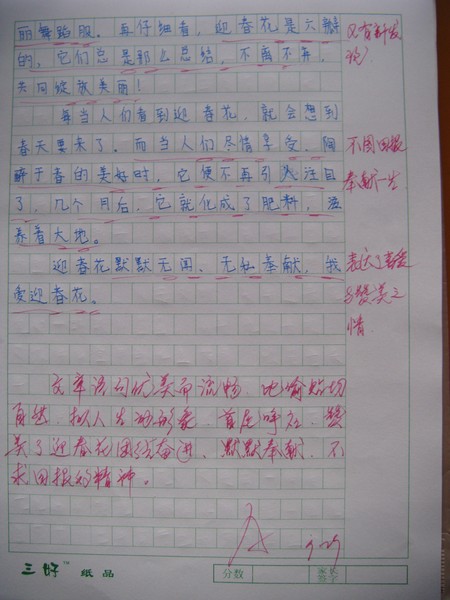 丽舞蹈服。再仔细看，迎春花是六瓣
的，它们总是那么总结，不离不弃，
共同绽放美丽！
又有新发
每当人们看到迎春花，就会想到
春天要来了。而当人们尽情享受、陶
醉于春的美好时，它便不再引人注目
了，几个月后，它就化成了肥料，滋
养着大地。
不图回报
奉献一生
迎春花默默无闻、无私奉献，我
爱迎春花。
表达了喜爱
与赞美之
情
文章语句优美而流畅，比喻贴切
自然，拟人生动形象，首尾呼应，赞
美了迎春花团结奋进，默默奉献，不
求回报的精神。
三好 纸品
分数
家长
签字